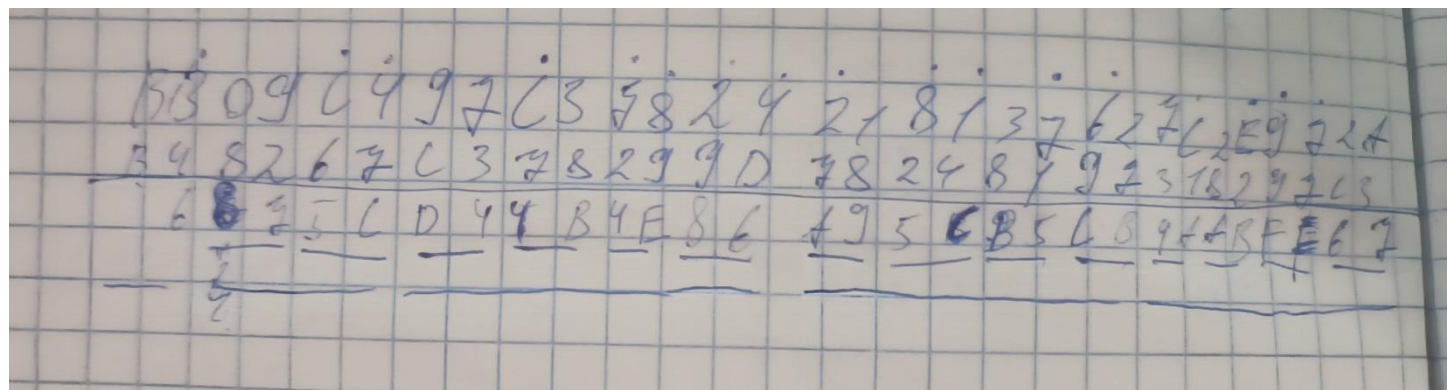 BB09C497C37824218137627C2E972A
B48267C378299D78248197318297C3
6875CD44B4E86A95CB5CB4AABFE67